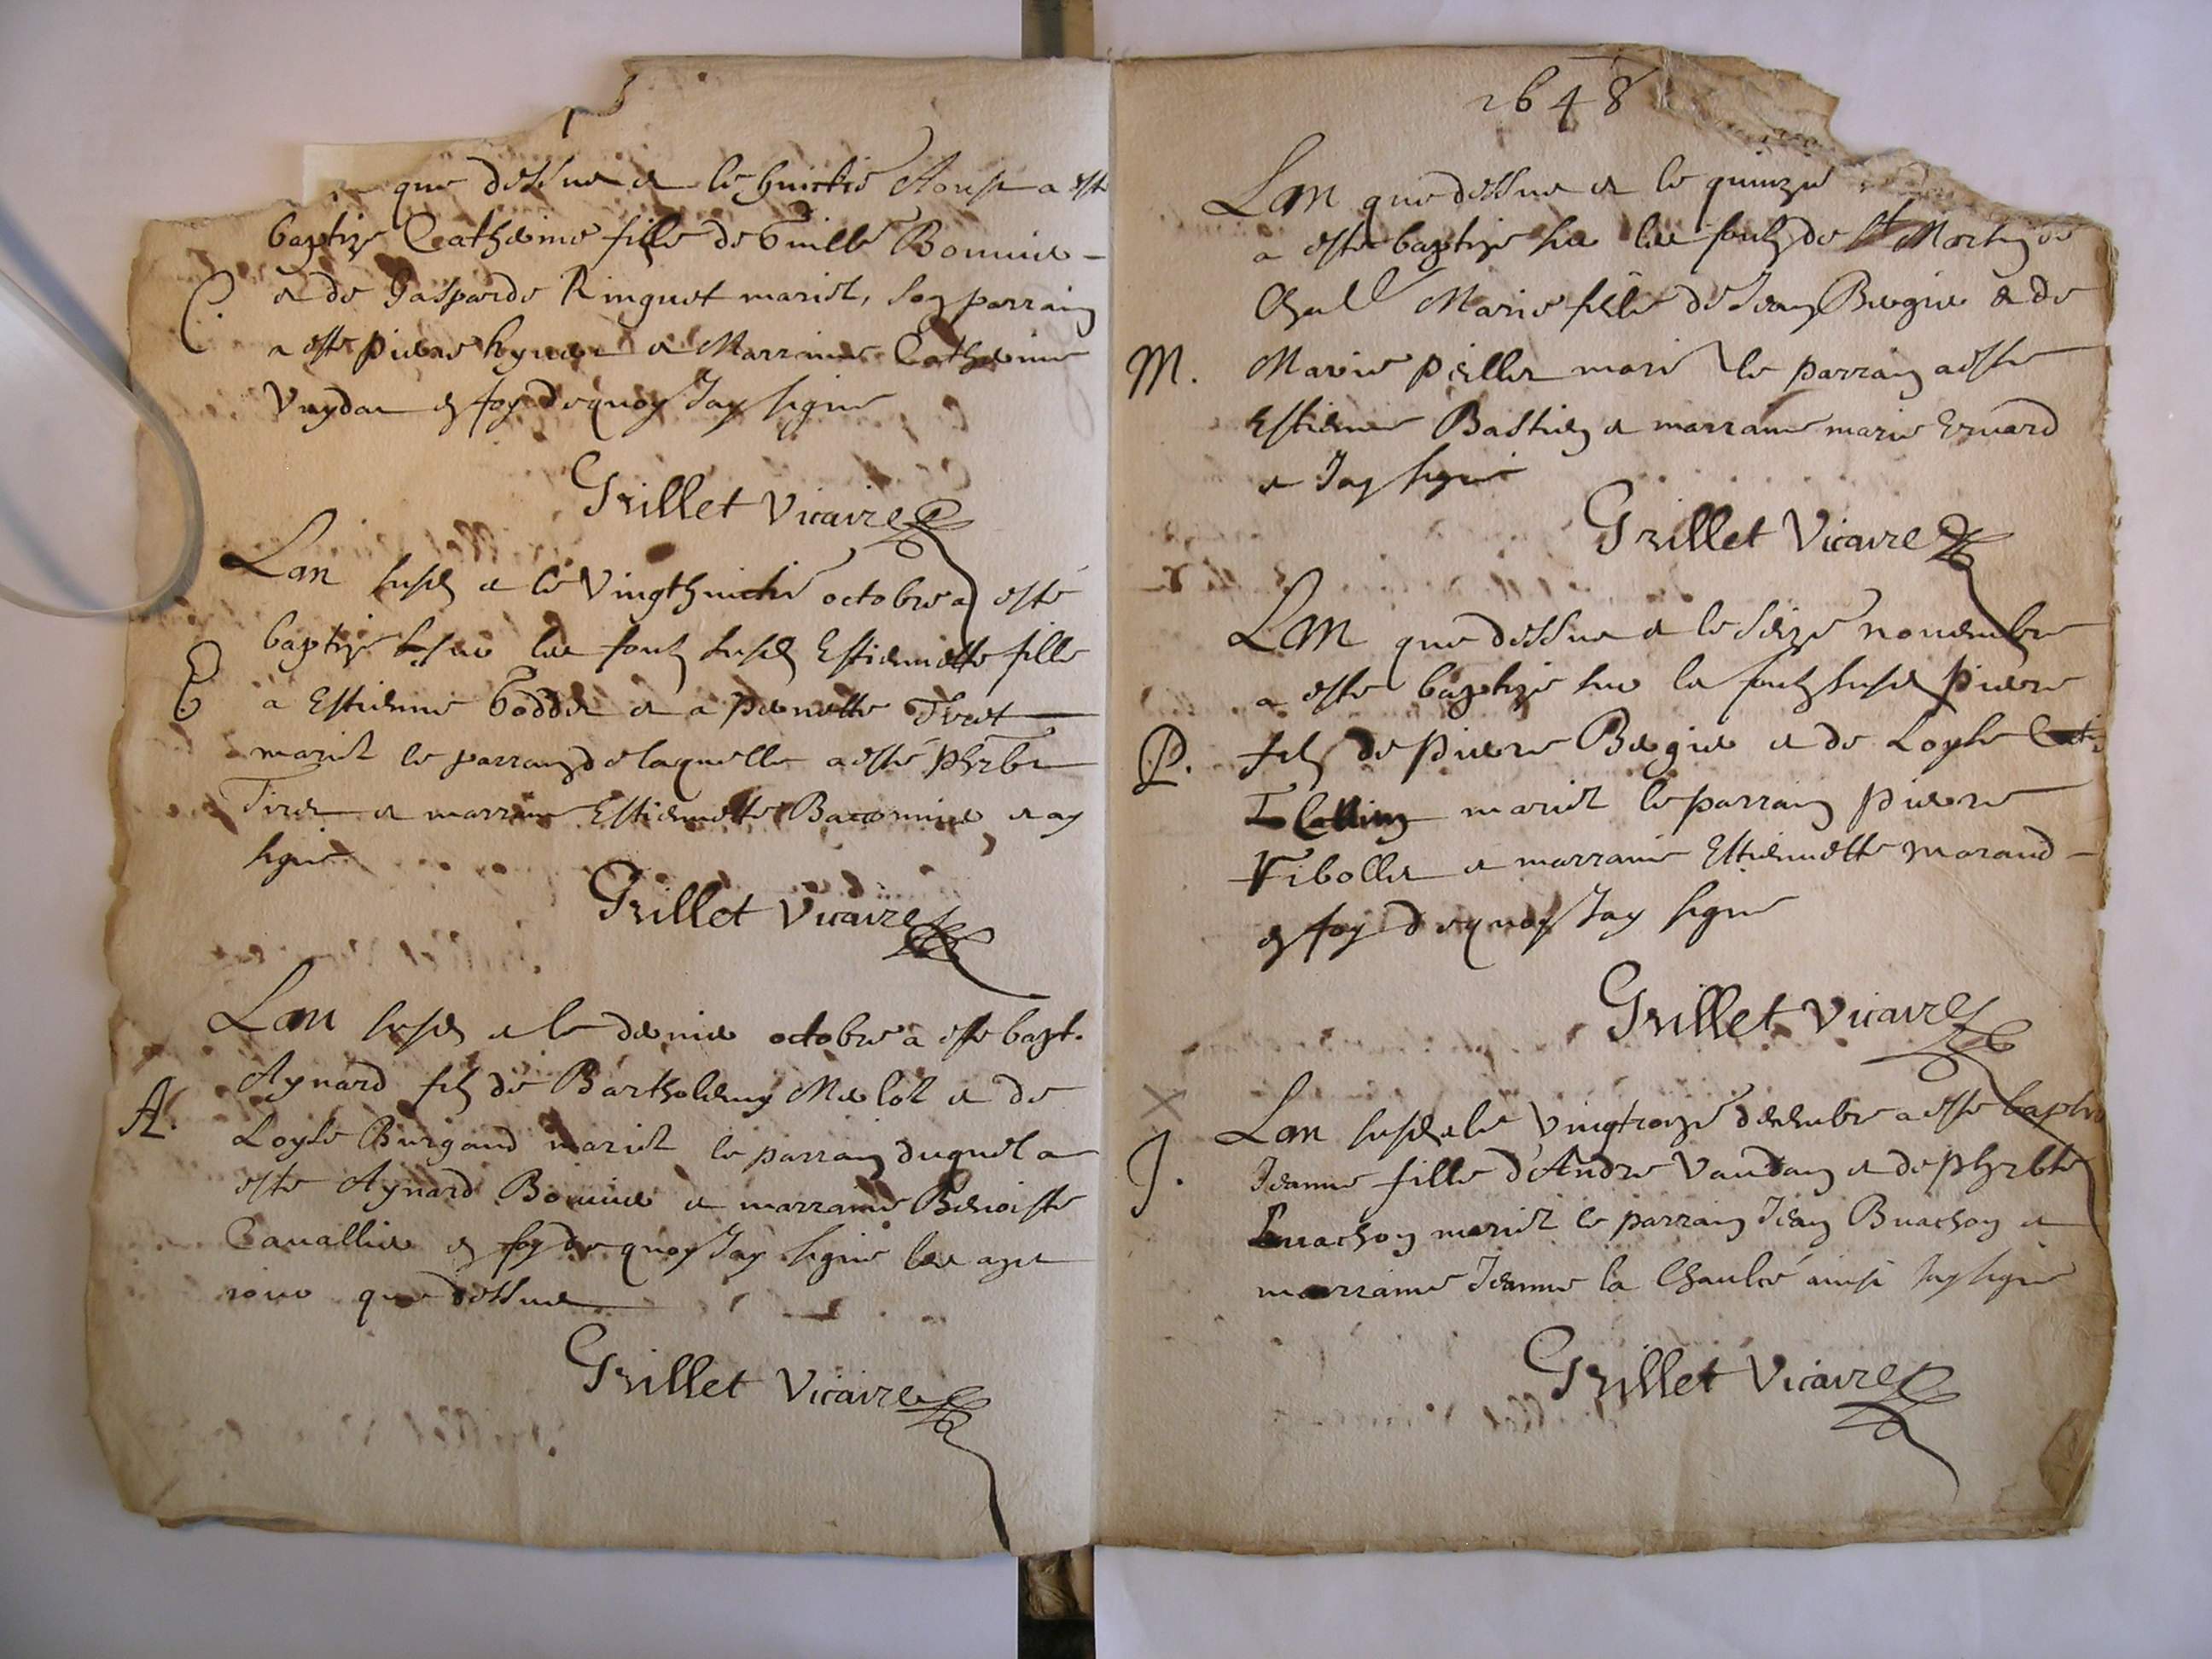 que dessus et le huictie Aoust a esté
baptize Catherine fille de Guille Bonnier
C. et de Gasparde Ringuet mariez, son parrain
a este pierre et Marraine Catherine
en foy dequoy Jay signe
Grillet Vicaire
Lan susd et le Vingthuictie octobre a esté
baptize sur les fontz susd Estiennette fille
E a Estienne Goddet et a pernette Tiret
mariez le parrain de laquelle a esté phzbert
Tiret et marraine Estiennette et ay
signe
Grillet Vicaire
Lan susd et le dernier octobre a este bapt.
A. Aynard filz de Bartholemy Melot et de
Loyse Burgaud mariez le parrain duquel a
este Aynard Bonnier et marraine Benoiste
Cavallier en foy de quoy Jay signe les an et
jour que dessus
Grillet Vicaire
1648
Lan que dessus et le quinzie
a este baptize sur les fontz de St Martin
Marie fille de Jean Bergier et de
M. Marie pillet marie le parrain a este
Estienne Bastien et marraine marie Evrard
et Jay signe
Grillet Vicaire
Lan que dessus et le seize novembre
a este baptize sur les fontz susd pierre
P. filz de pierre Bergier et de Loyse
mariez le parrain pierre
Tibollet et marraine Estiennette maraud
en foy dequoy Jay signe
Grillet Vicaire
Lan susd et le Vingtroize decembre a este baptize
J. Jeanne fille d'Andre Vaudan et de phzbte
Buachon mariez le parrain Jean Buachon et
marraine Jeanne la Chaulce ainsi Jay signe
Grillet Vicaire